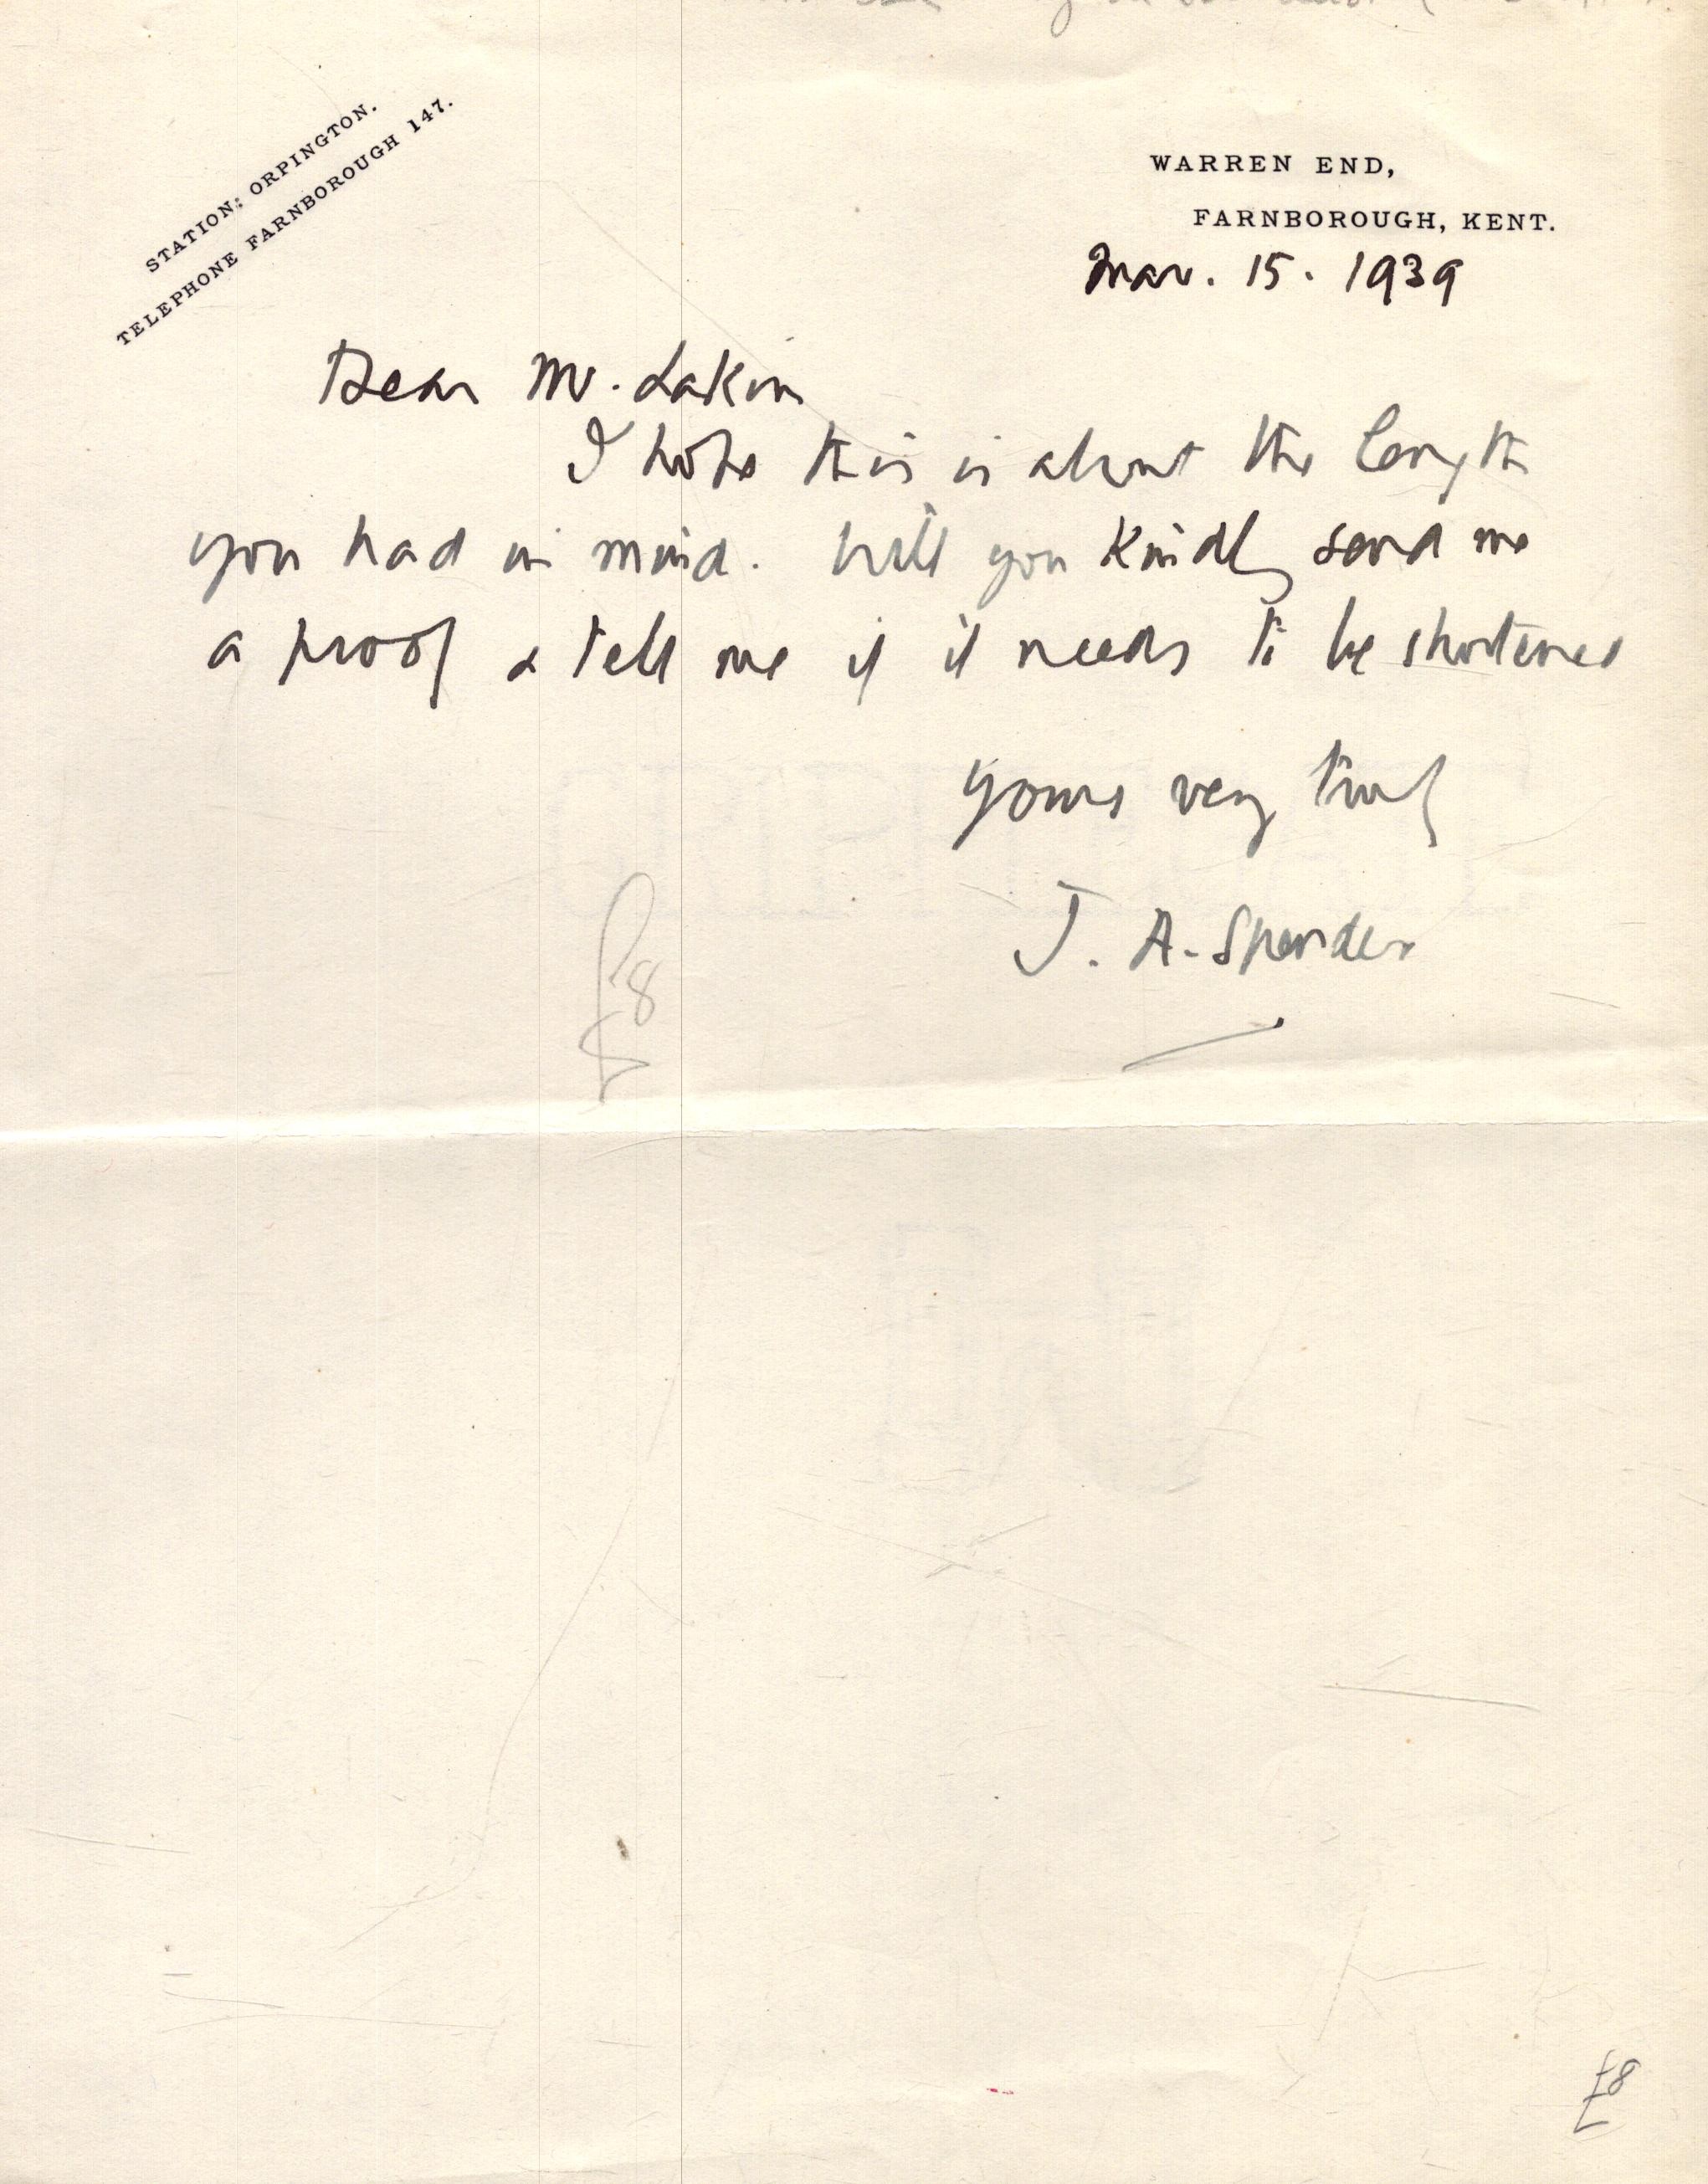 STATION: ORPINGTON.
TELEPHONE FARNBOROUGH 147.
WARREN END,
FARNBOROUGH, KENT.
Mar. 15. 1939
Dear Mr. Lakin
I hope this is about the length
you had in mind. Will you kindly send me
a proof & tell me if it needs to be shortened
Yours very truly
J. A. Spender
£8
£8